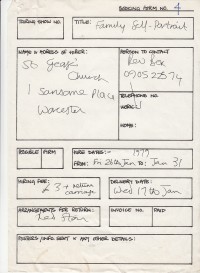 BOOKING FORM NO. 4
TOURING SHOW NO.
TITLE: Family Self-Portrait
NAME & ADDRESS OF HIRER:
St Georges
Church
1 Sansome Place
Worcester
PERSON TO CONTACT
Rev
0905 22574
TELEPHONE NO.
WORK:
HOME:
POSSIBLE FIRM
HIRE DATES:- 1979
FROM: Fri 26th Jan to Jan 31
HIRING FEE:
£3 + return
carriage
DELIVERY DATE:
Wed 17th Jan
ARRANGEMENTS FOR RETURN:
Red Star
INVOICE NO. PAID
POSTERS/INFO SENT & ANY OTHER DETAILS: